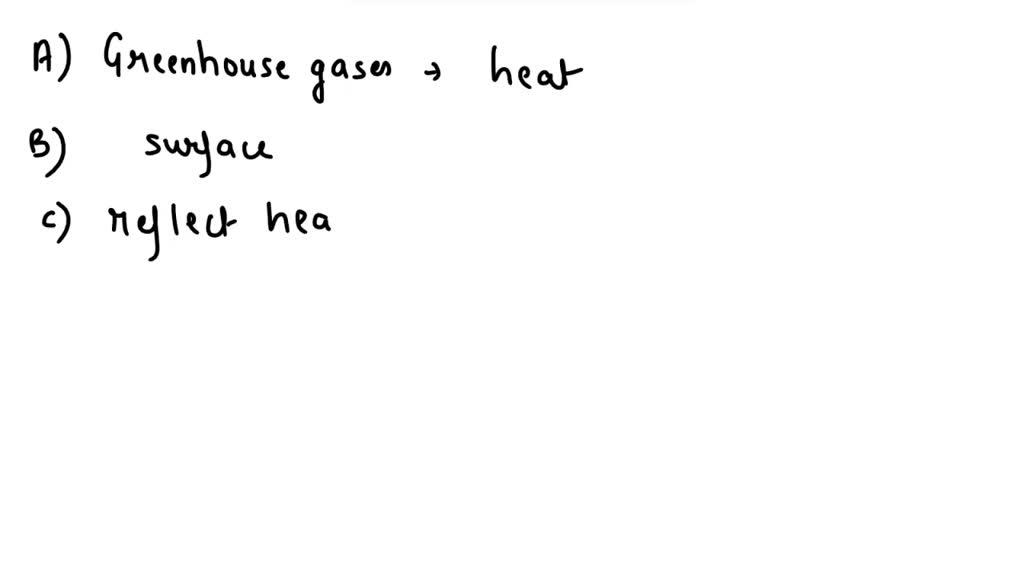 A) Greenhouse gases → heat
B) surface
c) reflect hea